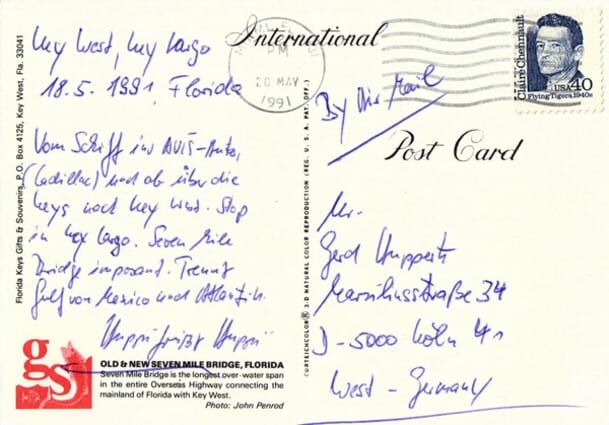 Key West, Key Largo
18.5.1991, Florida
Vom Schiff ins AVIS-Auto,
(Cadillac) und ab über die
Keys nach Key West. Stop
in Key Largo. Seven Mile
Bridge imposant. Trennt
Golf von Mexico und Atlantik.
Huppi grüßt Huppi
Florida Keys Gifts & Souvenirs, P.O. Box 4125, Key West, Fla. 33041
gs
OLD & NEW SEVEN MILE BRIDGE, FLORIDA
Seven Mile Bridge is the longest over-water span
in the entire Overseas Highway connecting the
mainland of Florida with Key West.
Photo: John Penrod
CURTEICHCOLOR® 3-D NATURAL COLOR REPRODUCTION (REG. U.S.A. PAT. OFF.)
International
Post Card
PM
20 MAY
1991
Claire Chennault
Flying Tigers, 1940s
USA 40
By Air Mail
Mr.
Gerd Huppertz
Marsiliusstraße 34
D-5000 Köln 41
West - Germany